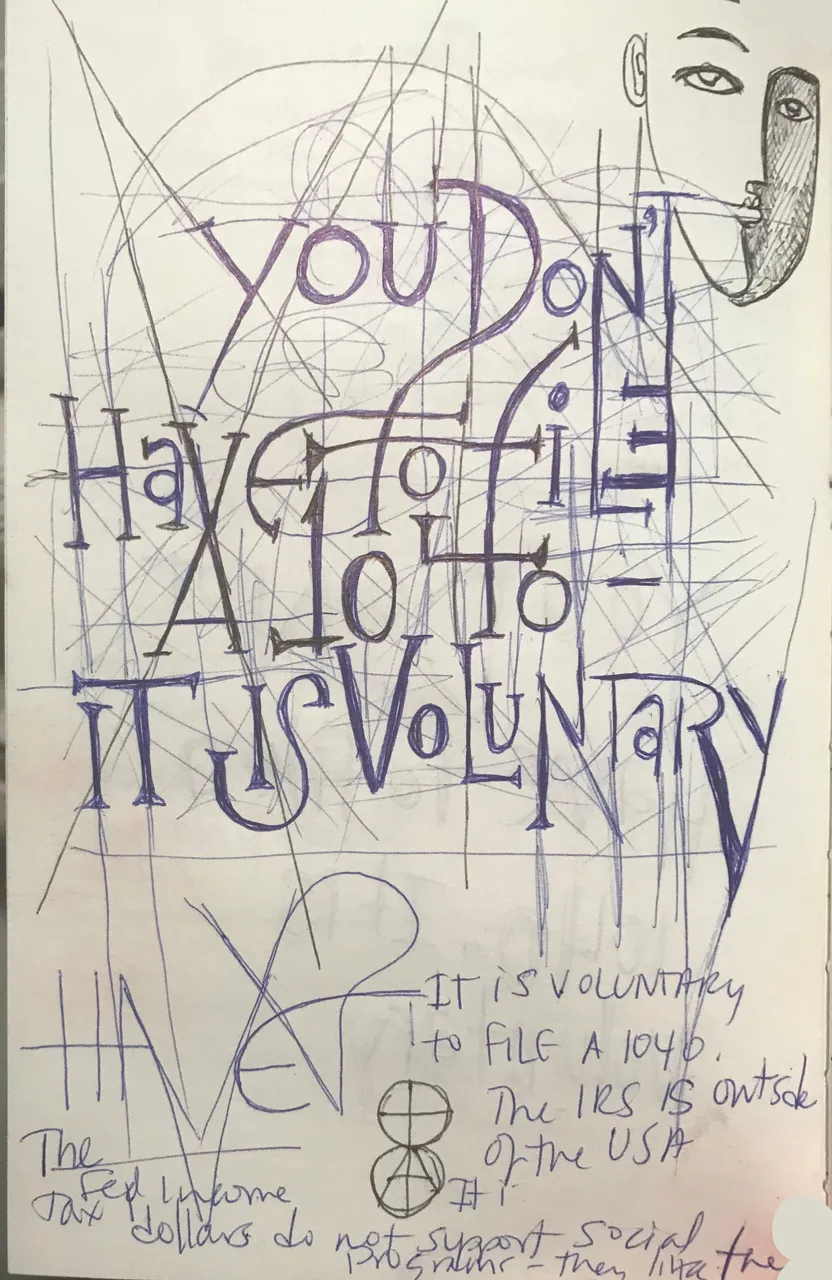 YOU DON'T
HaVE To FiLE
A 1040
IT IS VOLUNTaRY
HAVE
IT iS VOLUNTARY
to FILE A 1040.
The IRS IS outside
of the USA
It i
The
Fed Income
Tax dollars do not support social
programs - they
the